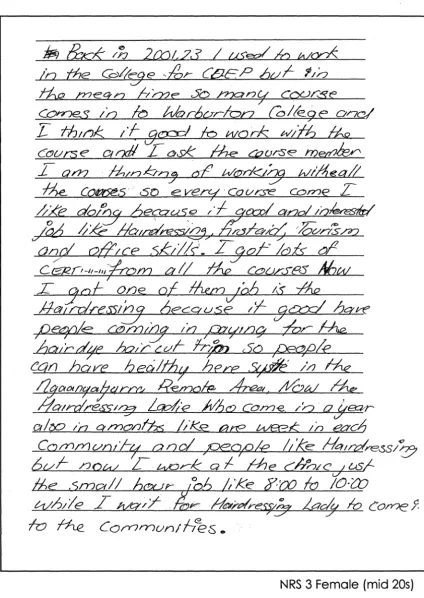 Back in 2001,2,3 I used to work
in the College for CDEP but in
the mean time so many course
comes in to Warburton College and
I think it good to work with the
course and I ask the course member
I am thinking of working witheall
the courses so every course come I
like doing because it good and interested
job like Hairdressing, firstaid, Tourism
and office skills. I got lots of
CERT....... from all the courses Now
I got one of them job is the
Hairdressing because it good have
people coming in paying for the
hairdye haircut trim so people
can have healthy here in the
Ngaanyatjarra Remote Area. Now the
Hairdressing Ladie Who come in a year
also in amonths like are week in each
Community and people like Hairdressing
but now I work at the clinic just
the small hour job like 8:00 to 10:00
while I wait for Hairdressing Lady to come
to the Communities.
NRS 3 Female (mid 20s)